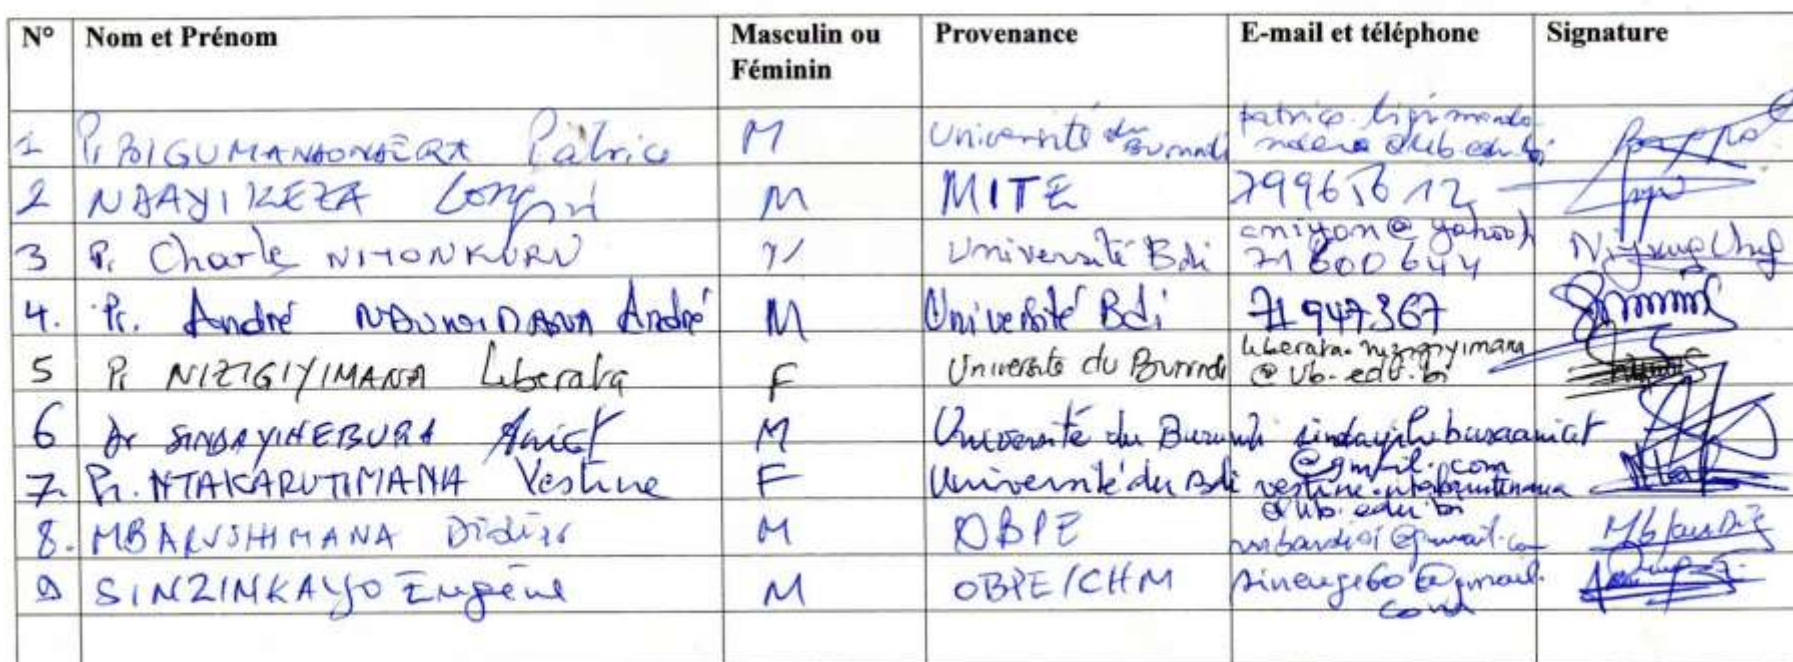 N° Nom et Prénom Masculin ou Féminin Provenance E-mail et téléphone Signature
1 Pr BIGUMANDONDERA Patrice M Université du Burundi patrice.bigumandondera@ub.edu.bi
2 NDAYIKEZA Longin M MITE 79965612
3 Pr Charle NIYONKURU M Université Bdi cniyon@yahoo.fr 71600644
4. Pr. André NDUWIMANA André M Université Bdi 71947367
5 Pr NIZIGIYIMANA Liberata F Université du Burundi liberata.nizigiyimana@ub.edu.bi
6 Dr SINDAYIHEBURA Anicet M Université du Burundi sindayiheburaanicet@gmail.com
7. Pr. NTAKARUTIMANA Vestine F Université du Bdi vestine.ntakarutimana@ub.edu.bi
8. MBARUSHIMANA Didier M OBPE mbardidi@gmail.com
9 SINZINKAYO Eugène M OBPE/CHM sineuge60@gmail.com